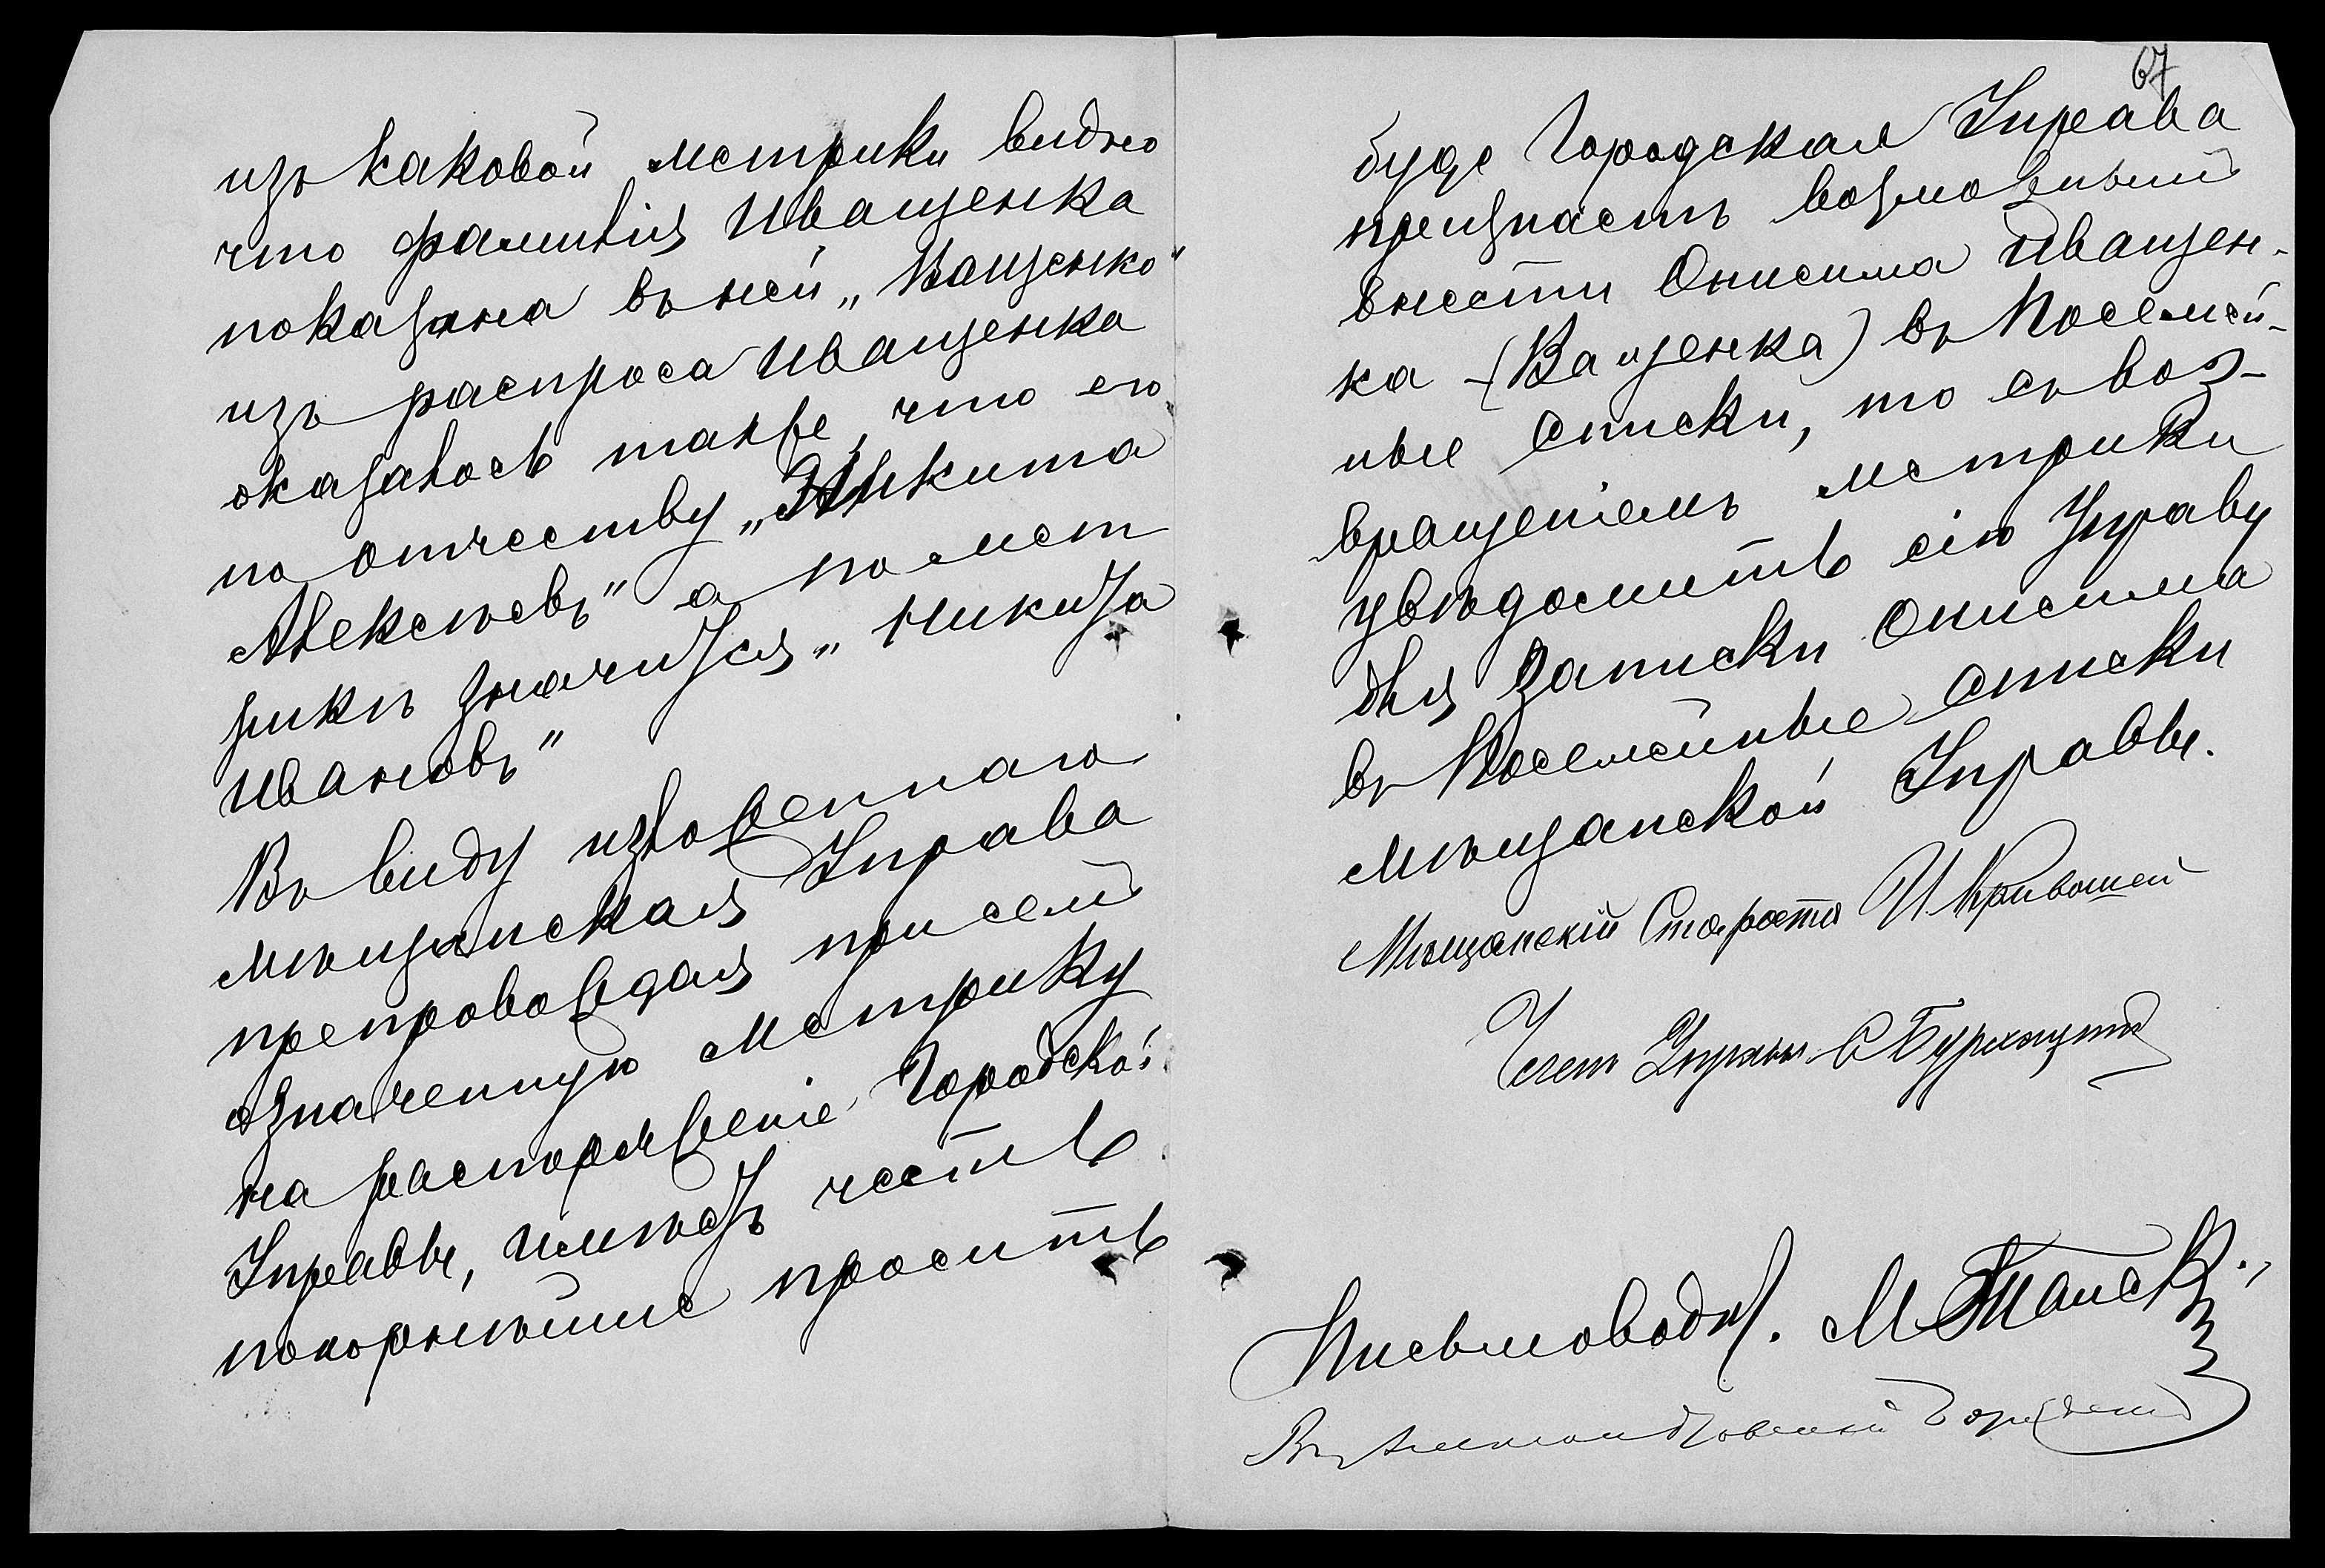 изъ каковой метрики видно
что фамилія Иващенка
показана въ ней „Ващенко"
изъ распроса Иващенка
оказалось также, что его
по отчеству „Никита
Алексѣевъ" а по мет
рикѣ значится „Никита
Ивановъ"
Въ виду изложеннаго
мѣщанская Управа
препровождая при семъ
означенную метрику
на распоряженіе Городской
Управы, имѣетъ честь
покорнѣйше просить
67
буде Городская Управа
признаетъ возможнымъ
внести Онисима Иващен-
ка (Ващенка) въ Посемей-
ные списки, то съ воз-
вращеніемъ метрики
увѣдомить сію Управу
для записки Онисима
въ Посемейные списки
мѣщанской Управы.
Мѣщанскій Староста И Кривошей
Члет Управы С
Письмоводит. М
Въ Александровскій Город